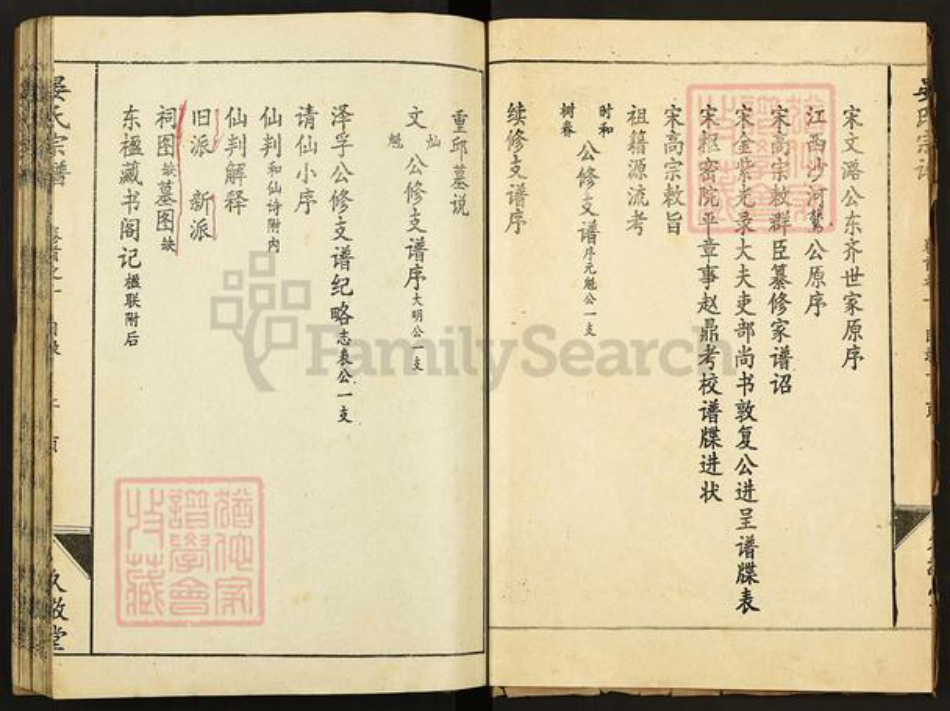 宋文潞公东齐世家原序
江西沙河鷟公原序
宋高宗敕群臣纂修家谱诏
宋金紫光录大夫吏部尚书敦复公进呈谱牒表
宋枢密院平章事赵鼎考校谱牒进状
宋高宗敕旨
祖籍源流考
时和 树春 公修支谱序元魁公一支
续修支谱序
重邱墓说
文 灿 魁 公修支谱序大明公一支
泽孚公修支谱纪略志表公一支
请仙小序
仙判和仙诗附内
仙判解释
旧派 新派
祠图缺墓图缺
东楹藏书阁记楹联附后
晏氏宗谱
久敬堂
FamilySearch